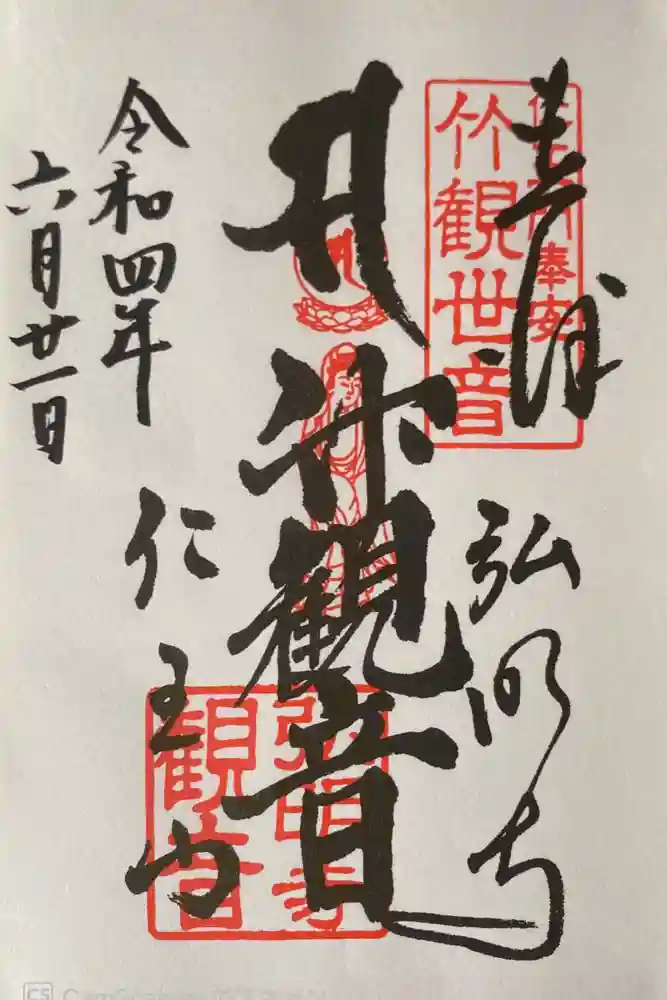 奉拝
弘明寺
竹観世音
奉安
竹観音
弘明寺
観音
仁王門
令和四年
六月廿一日
CS CamScanner